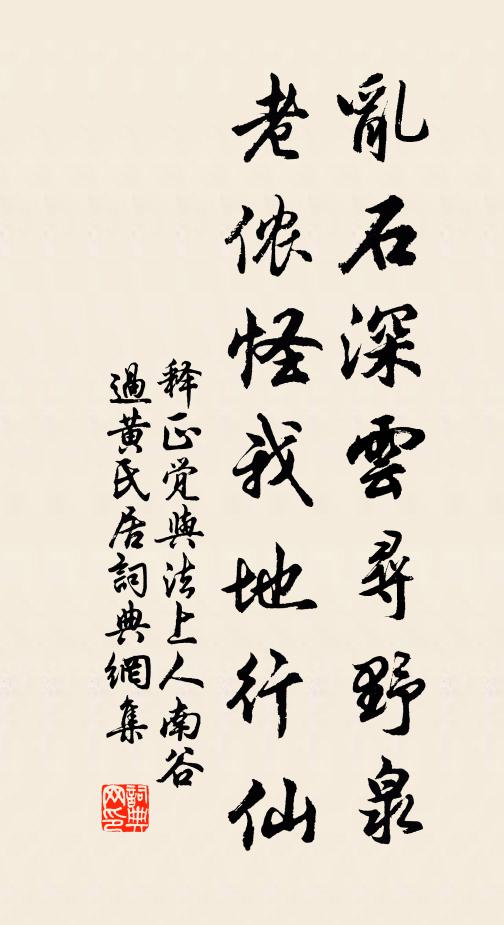 亂石深雲尋野泉
老侬怪我地行仙
释正觉與法上人南谷
過黄氏居詞典網集
詞典网印